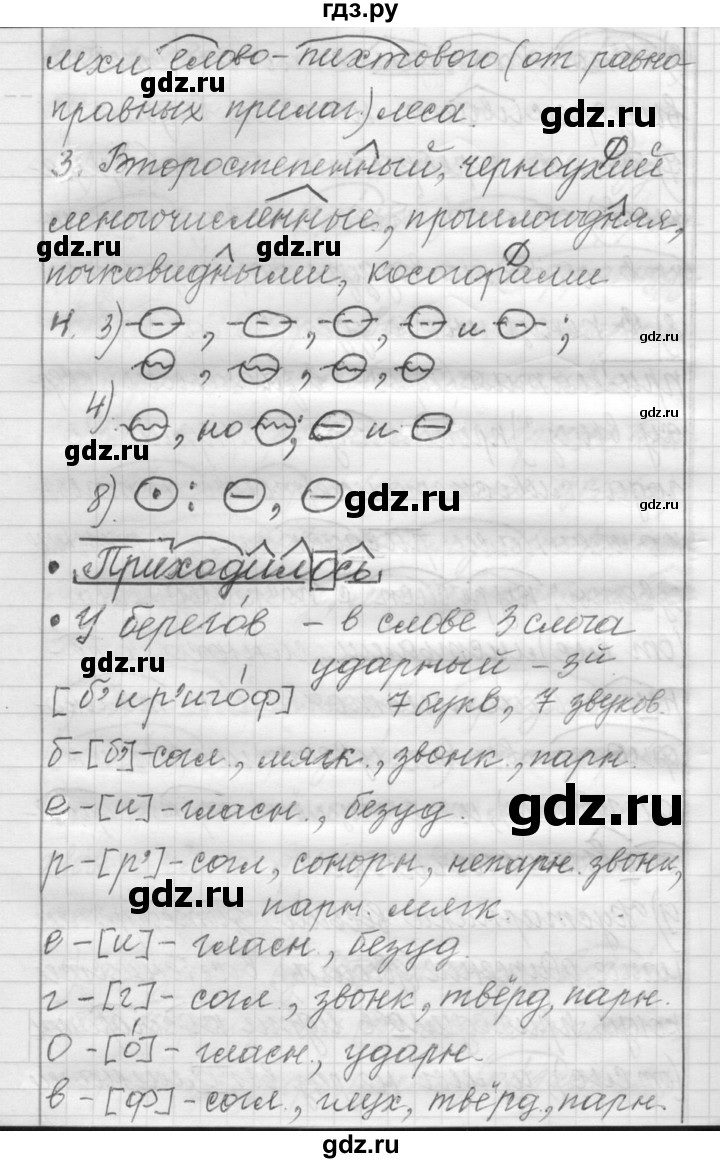 гдз.ру
мхи елово-пихтового (от равно
правных прилаг.) леса.
gdz.ru
3. Второстепенный, черноухий
многочисленные, прошлогодняя,
gdz.ru gdz.ru
почковидными, косогорами
4. 3) , , , и ;
gdz.ru
, , ,
4) , но ; и
gdz.ru
gdz.ru
8) : ,
gdz.ru
gdz.ru
• Приходилось
• У берего́в – в слове 3 слога
gdz.ru
ударный – 3й
[б'ир'иго́ф] 7 букв, 7 звуков.
б-[б']-согл., мягк., звонк., парн.
е-[и]-гласн., безуд.
gdz.ru
р-[р']-согл, сонорн, непарн. звонк,
gdz.ru
парн. мягк.
е-[и]- гласн., безуд.
г-[г]- согл., звонк, твёрд, парн.
о-[о́]- гласн., ударн.
в-[ф]-согл., глух, твёрд., парн.
gdz.ru